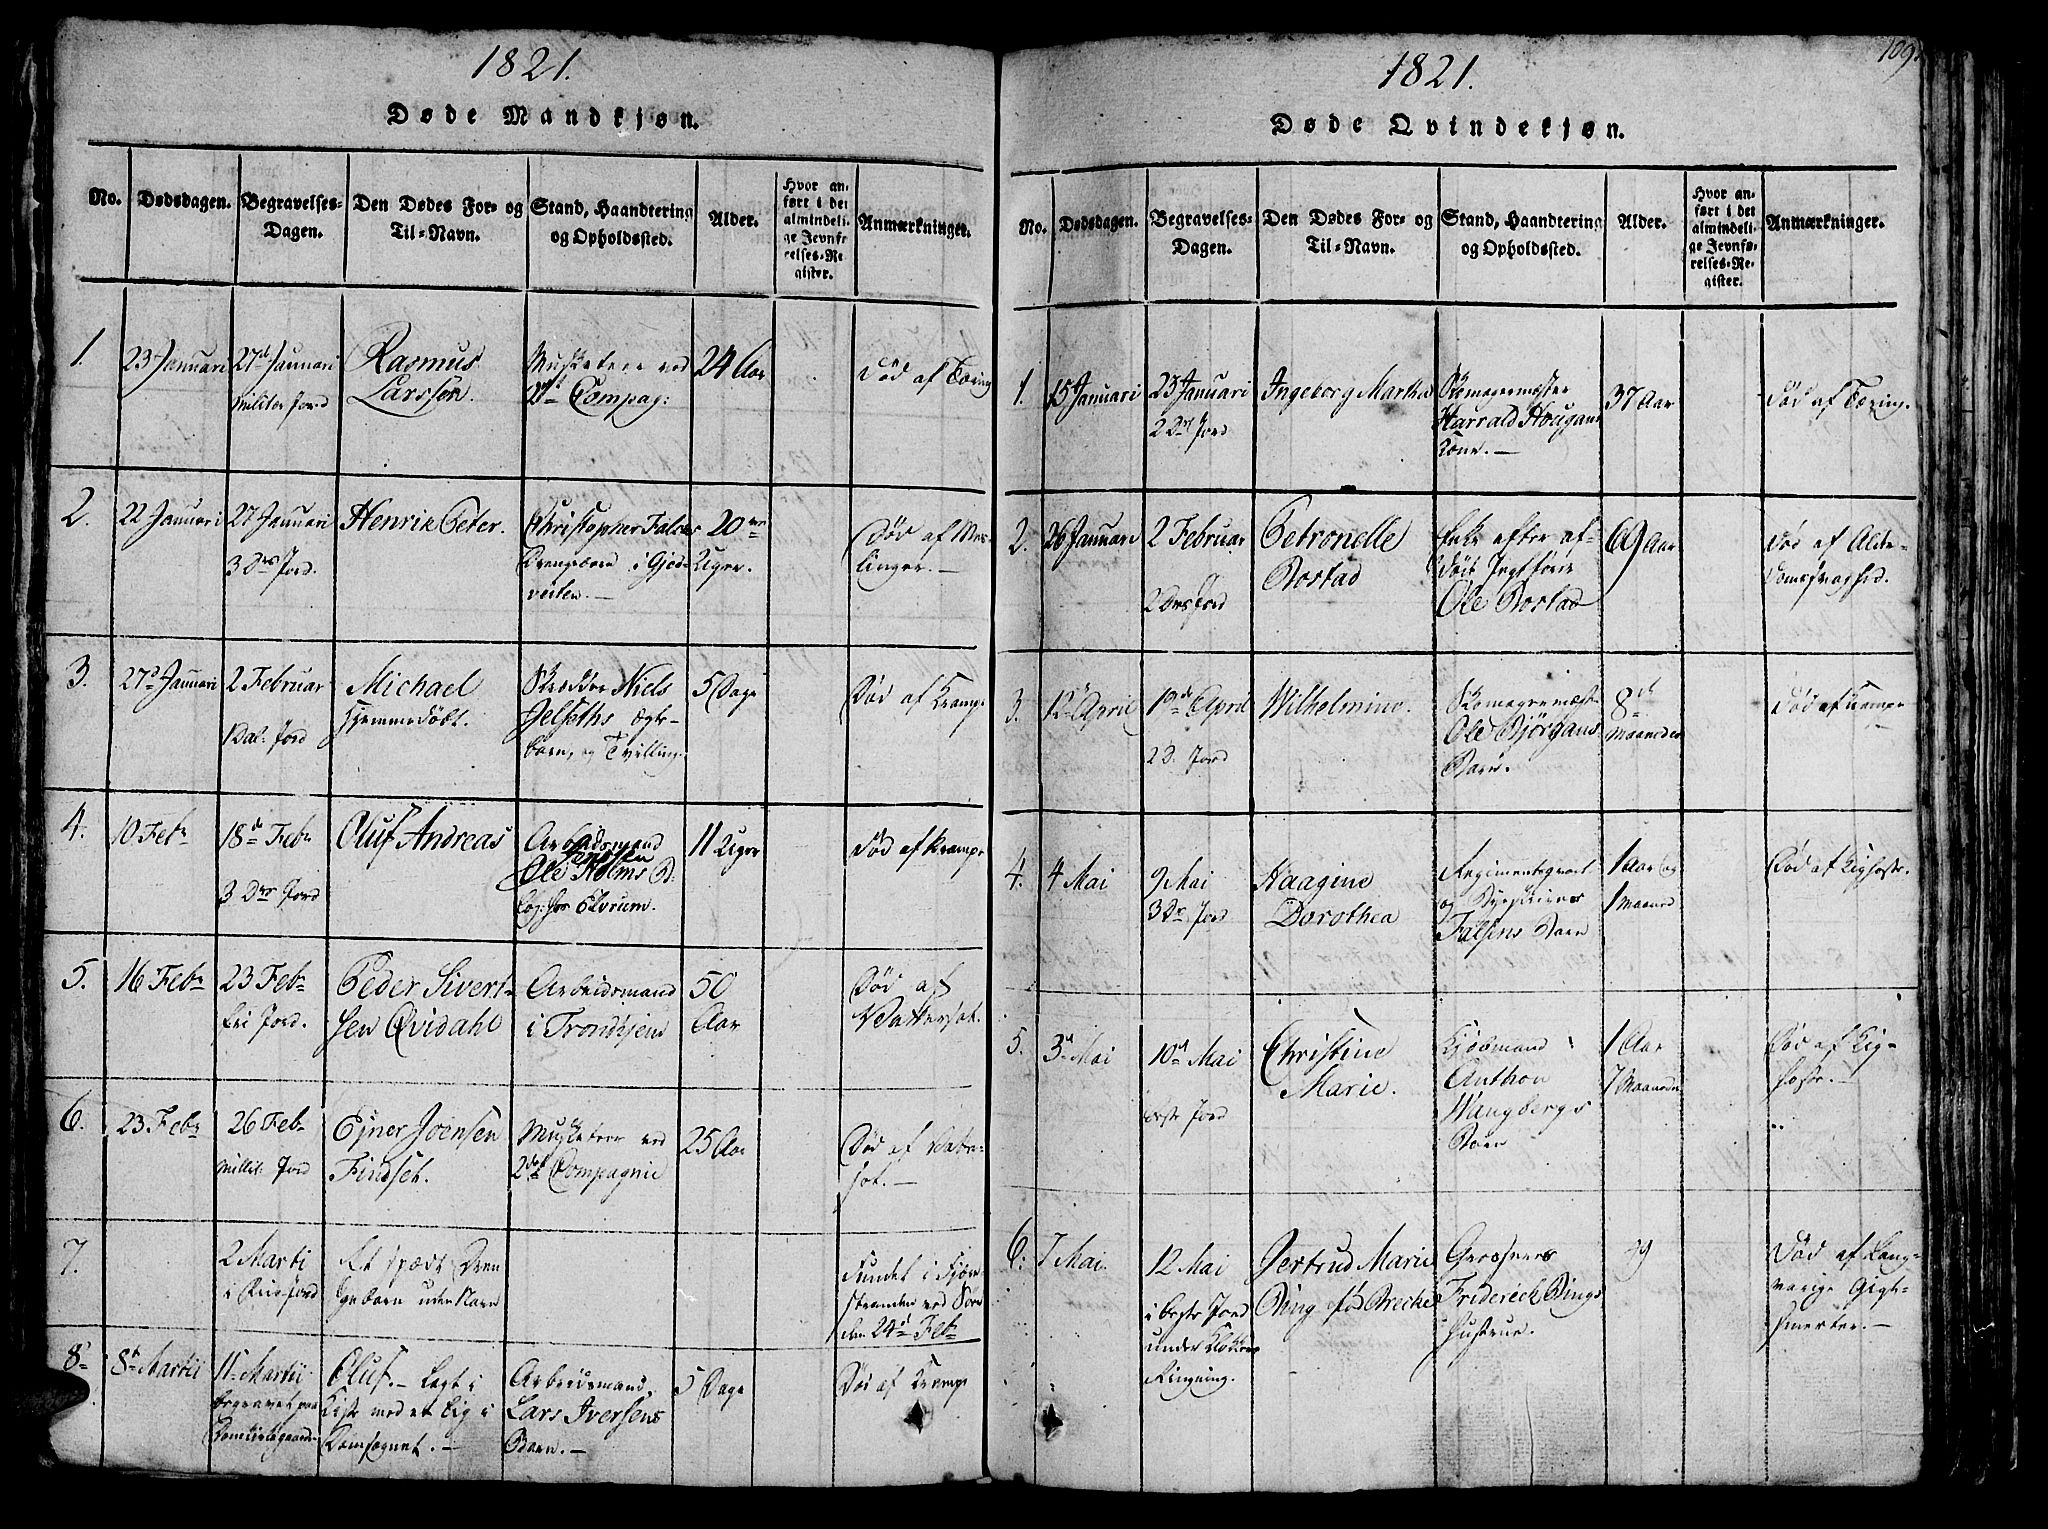 1821.
Døde Mandkjøn.
No.
Dødsdagen.
Begravelses-
Dagen.
Den Dødes For- og
Til-Navn.
Stand, Haandtering
og Opholdssted.
Alder.
Hvor an-
ført i det
almindeli-
ge Jevnfø-
relses-Re-
gister.
Anmærkninger.
1.
23 Januari
27d Januari
Militær Jord
Rasmus
Larssen.
Musketeer ved
Compag:
24 Aar
Død af Tæring
2.
22 Januari
27 Januari
3 Drs Jord.
Henrik Peter.
Christopher
Drengebarn i
veiten.
20
Uger.
Død af Mes-
linger.
3.
27d Januari
2 Februar
Jord
Michael
hjemmedøbt.
Skrædder Niels
Jelseths ægte-
barn, og Tvilling.
5 Dage
Død af Krampe
4.
10 Febr
18d Febr
3 Drs Jord
Oluf Andreas
Arbeidsmand
Ole Holms
11 Uger
Død af Krampe
5.
16 Febr
23 Febr
fri Jord.
Peder Sivert-
sen Qvidahl
Arbeidsmand
i Trondhjem
50
Aar
Død af
Vattersot.
6.
23 Febr
26 Febr
Millit. Jord
Ejner Joensen
Findset.
Musketeer ved
2det Compagnie
25 Aar
Død af Vater-
sot.
7.
2 Marti
i Jord
Et spædt Dren
gebarn uden Navn
Fundet i Fjære-
stranden ved
den 24d Febr
8.
8 Martii
11 Martii
begravet paa
Domkirkegaarden
Oluf. - lagt i
Kiste med et Lig i
Domsognet.
Arbeidsmand
Lars Iversens
Barn.
5 Dage
Død af Krampe
109.
1821.
Døde Qvindekjøn.
No.
Dødsdagen.
Begravelses-
Dagen.
Den Dødes For- og
Til-Navn.
Stand, Haandtering
og Opholdssted.
Alder.
Hvor an-
ført i det
almindeli-
ge Jevnfø-
relses-Re-
gister.
Anmærkninger.
1.
15 Januari
23 Januari
2 Drs Jord
Ingeborg Martha
Skomagermester
Harrald Hougans
Kone.
37 Aar
Død af Tæring.
2.
26 Januari
2 Februar
2 Drs Jord
Petronelle
Rostad
Enke efter af-
død
Ole Rostad
69 Aar
Død af Alder-
domssvaghed.
3.
12 April
19d April
2 D. Jord
Wilhelmine.
Skomagermest-
Ole Bjørgans
Barn.
8
Maaneder
Død af Krampe
4.
4 Mai
9 Mai
3 Dr Jord
Haagine
Dorothea
og Byeskriver
Falsens Barn
1 Aar og
1 Maaned
Død af Kighoste.
5.
3d Mai
10d Mai
beste Jord
Christine
Marie.
Kjøbmand
Anthon
Wangbergs
Barn
1 Aar
7 Maaneder
Død af Kig-
hoste.
6.
7 Mai.
12 Mai
i beste Jord
under Klokkers
Ringning.
Jertrud Marie
Bing fød Brecke
Grosserer
Friderich Bings
Hustrue.
Død af Lang-
varige Gigt-
smerter.